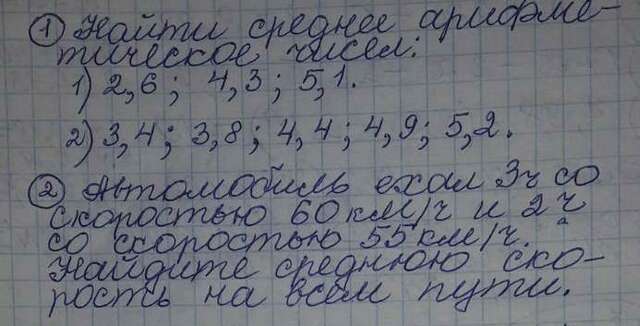 ① Найти среднее арифме-
тическое чисел:
1) 2,6; 4,3; 5,1.
2) 3,4; 3,8; 4,4; 4,9; 5,2.
② Автомобиль ехал 3ч со
скоростью 60км/ч и 2ч
со скоростью 55км/ч.
Найдите среднюю ско-
рость на всем пути.